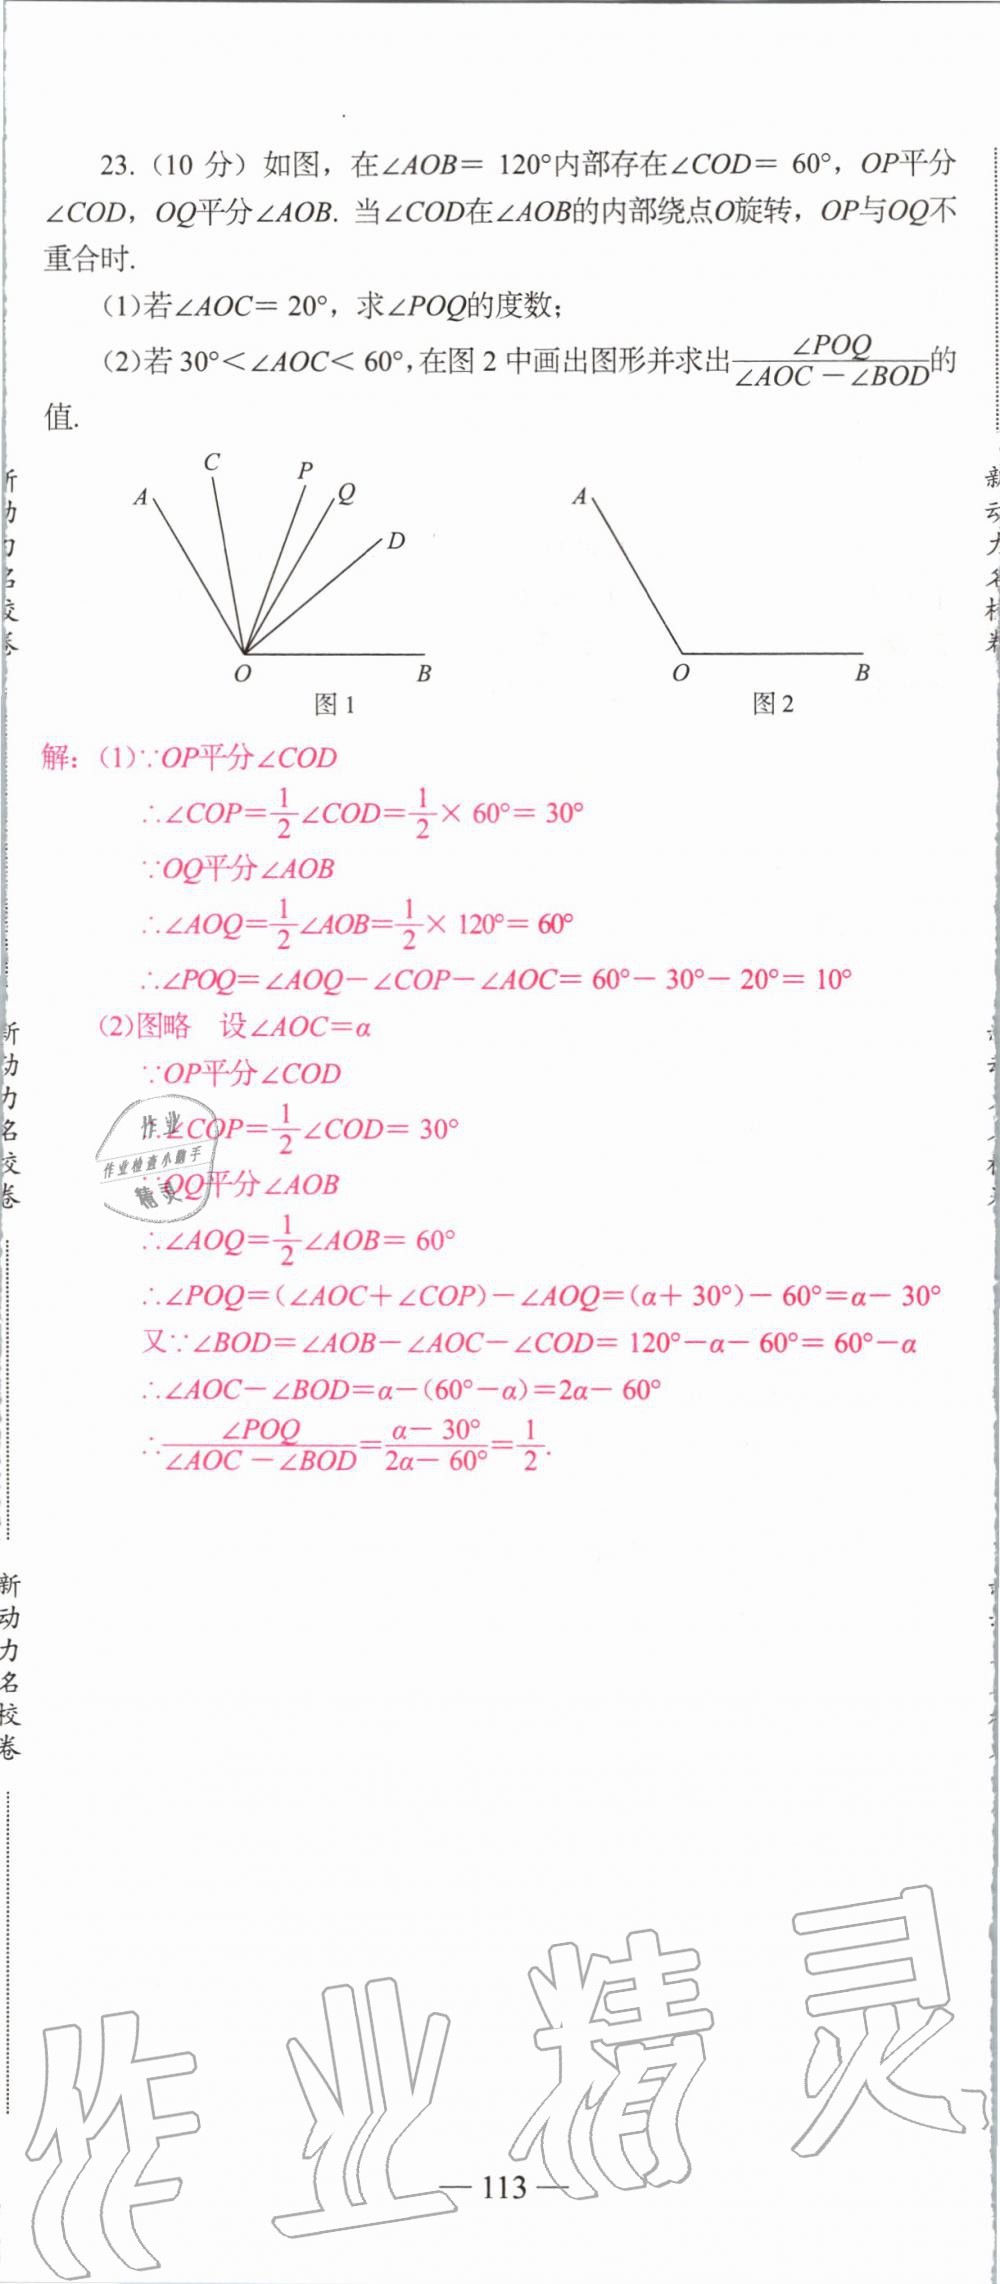 23.（10 分）如图，在∠AOB= 120°内部存在∠COD= 60°，OP平分
∠COD，OQ平分∠AOB. 当∠COD在∠AOB的内部绕点O旋转，OP与OQ不
重合时.
(1)若∠AOC= 20°，求∠POQ的度数；
(2)若 30°<∠AOC< 60°,在图 2 中画出图形并求出∠POQ/(∠AOC-∠BOD)的
值.
A C P Q D O B
图 1
A O B
图 2
解：(1)∵OP平分∠COD
∴∠COP=1/2∠COD=1/2× 60°= 30°
∵OQ平分∠AOB
∴∠AOQ=1/2∠AOB=1/2× 120°= 60°
∴∠POQ=∠AOQ-∠COP-∠AOC= 60°- 30°- 20°= 10°
(2)图略 设∠AOC=α
∵OP平分∠COD
∴∠COP=1/2∠COD= 30°
∵OQ平分∠AOB
∴∠AOQ=1/2∠AOB= 60°
∴∠POQ=(∠AOC+∠COP)-∠AOQ=(α+ 30°)- 60°=α- 30°
又∵∠BOD=∠AOB-∠AOC-∠COD= 120°-α- 60°= 60°-α
∴∠AOC-∠BOD=α-(60°-α)=2α- 60°
∴∠POQ/(∠AOC-∠BOD)=(α- 30°)/(2α- 60°)=1/2.
作业
作业检查小助手
精灵
新动力名校卷
新动力名校卷
作业精灵
— 113 —